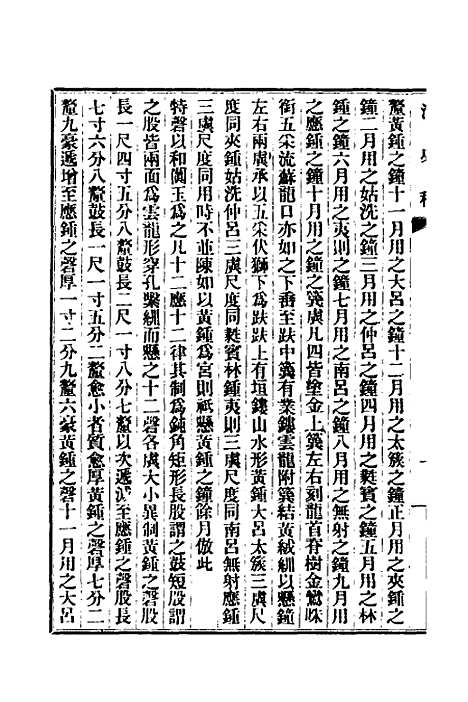 釐黃鍾之鐘十一月用之大呂之鐘十二月用之太簇之鐘正月用之夾鍾之
鐘二月用之姑洗之鐘三月用之仲呂之鐘四月用之蕤賓之鐘五月用之林
鍾之鐘六月用之夷則之鐘七月用之南呂之鐘八月用之無射之鐘九月用
之應鍾之鐘十月用之簨虡凡四皆塗金上簨左右刻龍首脊樹金鸞咮
銜五采流蘇龍口亦如之下垂至趺中簨有業鏤雲龍附簨結黃絨紃以懸鐘
左右兩虡承以五采伏獅下爲趺趺上有垣鏤山水形黃鍾大呂太簇三虡尺
度同夾鍾姑洗仲呂三虡尺度同蕤賓林鍾夷則三虡尺度同南呂無射應鍾
三虡尺度同用時不並陳如以黃鍾爲宮則祇懸黃鍾之鐘餘月倣此
特磬以和闐玉爲之凡十二應十二律其制爲鈍角矩形長股謂之鼓短股謂
之股皆兩面爲雲龍形穿孔繫紃而懸之十二磬各虡大小異制黃鍾之磬股
長一尺四寸五分八釐鼓長二尺一寸八分七釐以次遞減至應鍾之磬股長
七寸六分八釐鼓長一尺一寸五分二釐愈小者質愈厚黃鍾之磬厚七分二
釐九豪遞增至應鍾之磬厚一寸二分九釐六豪黃鍾之磬十一月用之大呂